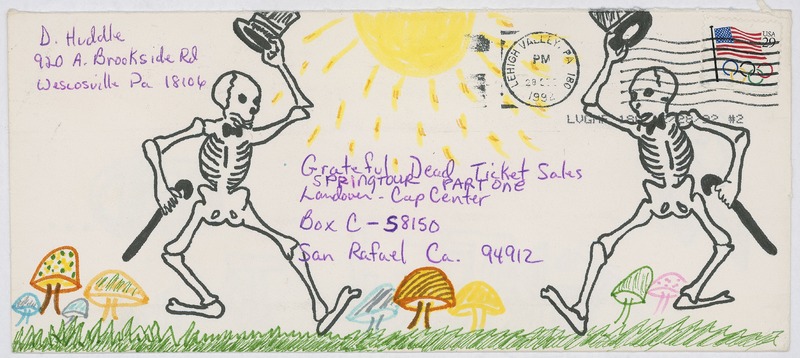 D. Huddle
920 A. Brookside Rd
Wescosville Pa 18106
LEHIGH VALLEY, PA 180
PM
1992
USA
29
Grateful Dead Ticket Sales
SPRINGTOUR PART ONE
Landover - Cap Center
Box C - S8150
San Rafael Ca. 94912